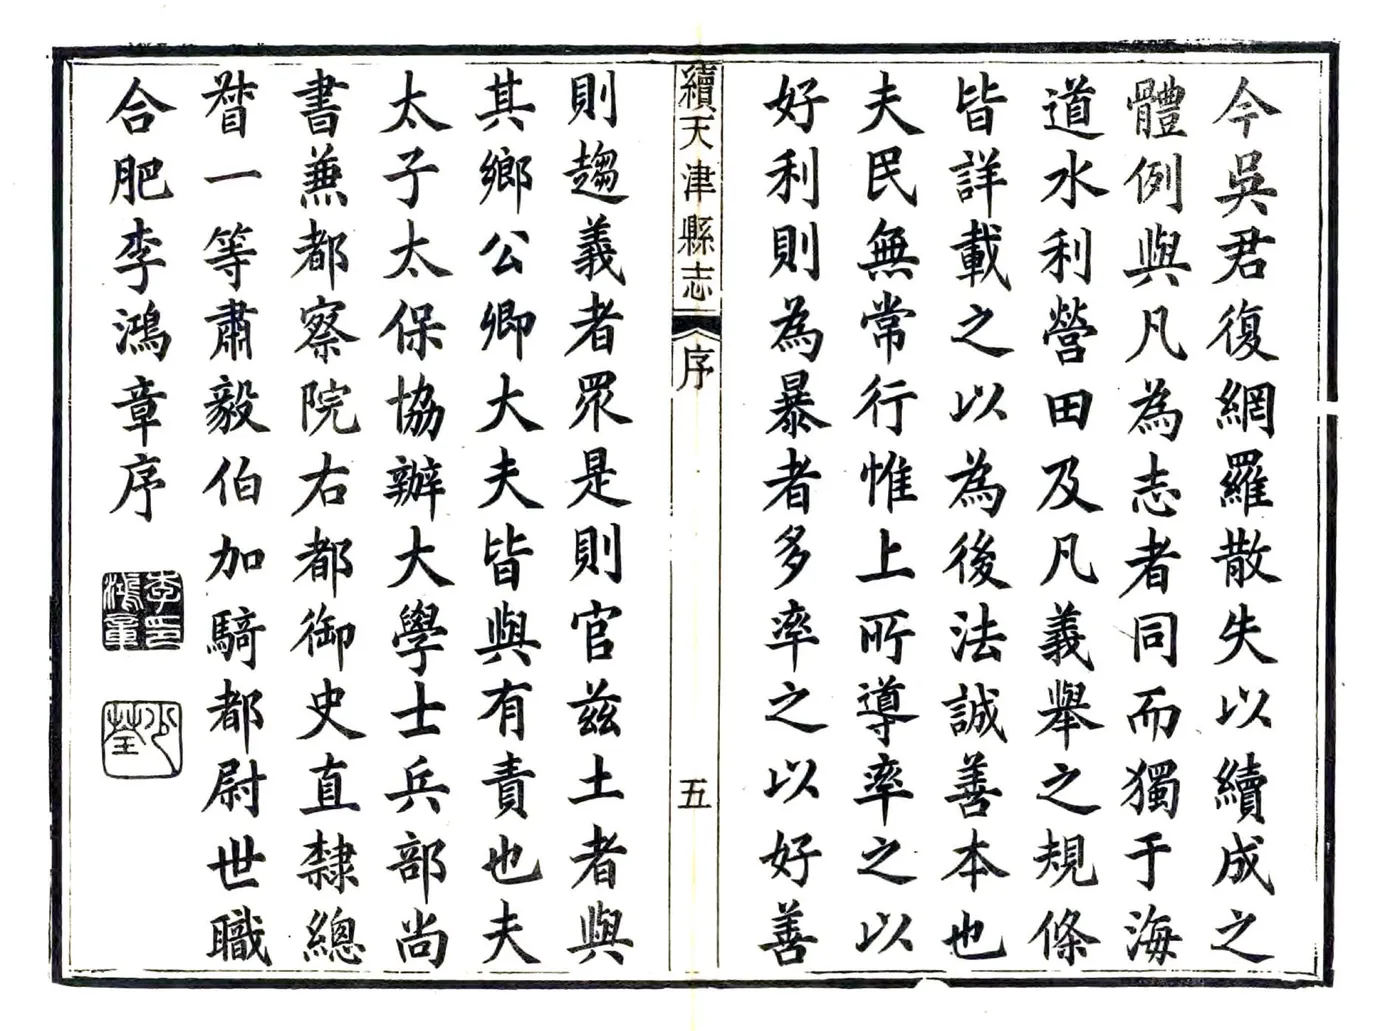 今吳君復網羅散失以續成之
體例與凡為志者同而獨于海
道水利營田及凡義舉之規條
皆詳載之以為後法誠善本也
夫民無常行惟上所導率之以
好利則為暴者多率之以好善
續天津縣志
序
五
則趨義者眾是則官茲土者與
其鄉公卿大夫皆與有責也夫
太子太保協辦大學士兵部尚
書兼都察院右都御史直隸總
督一等肅毅伯加騎都尉世職
合肥李鴻章序
李鴻章印
少荃